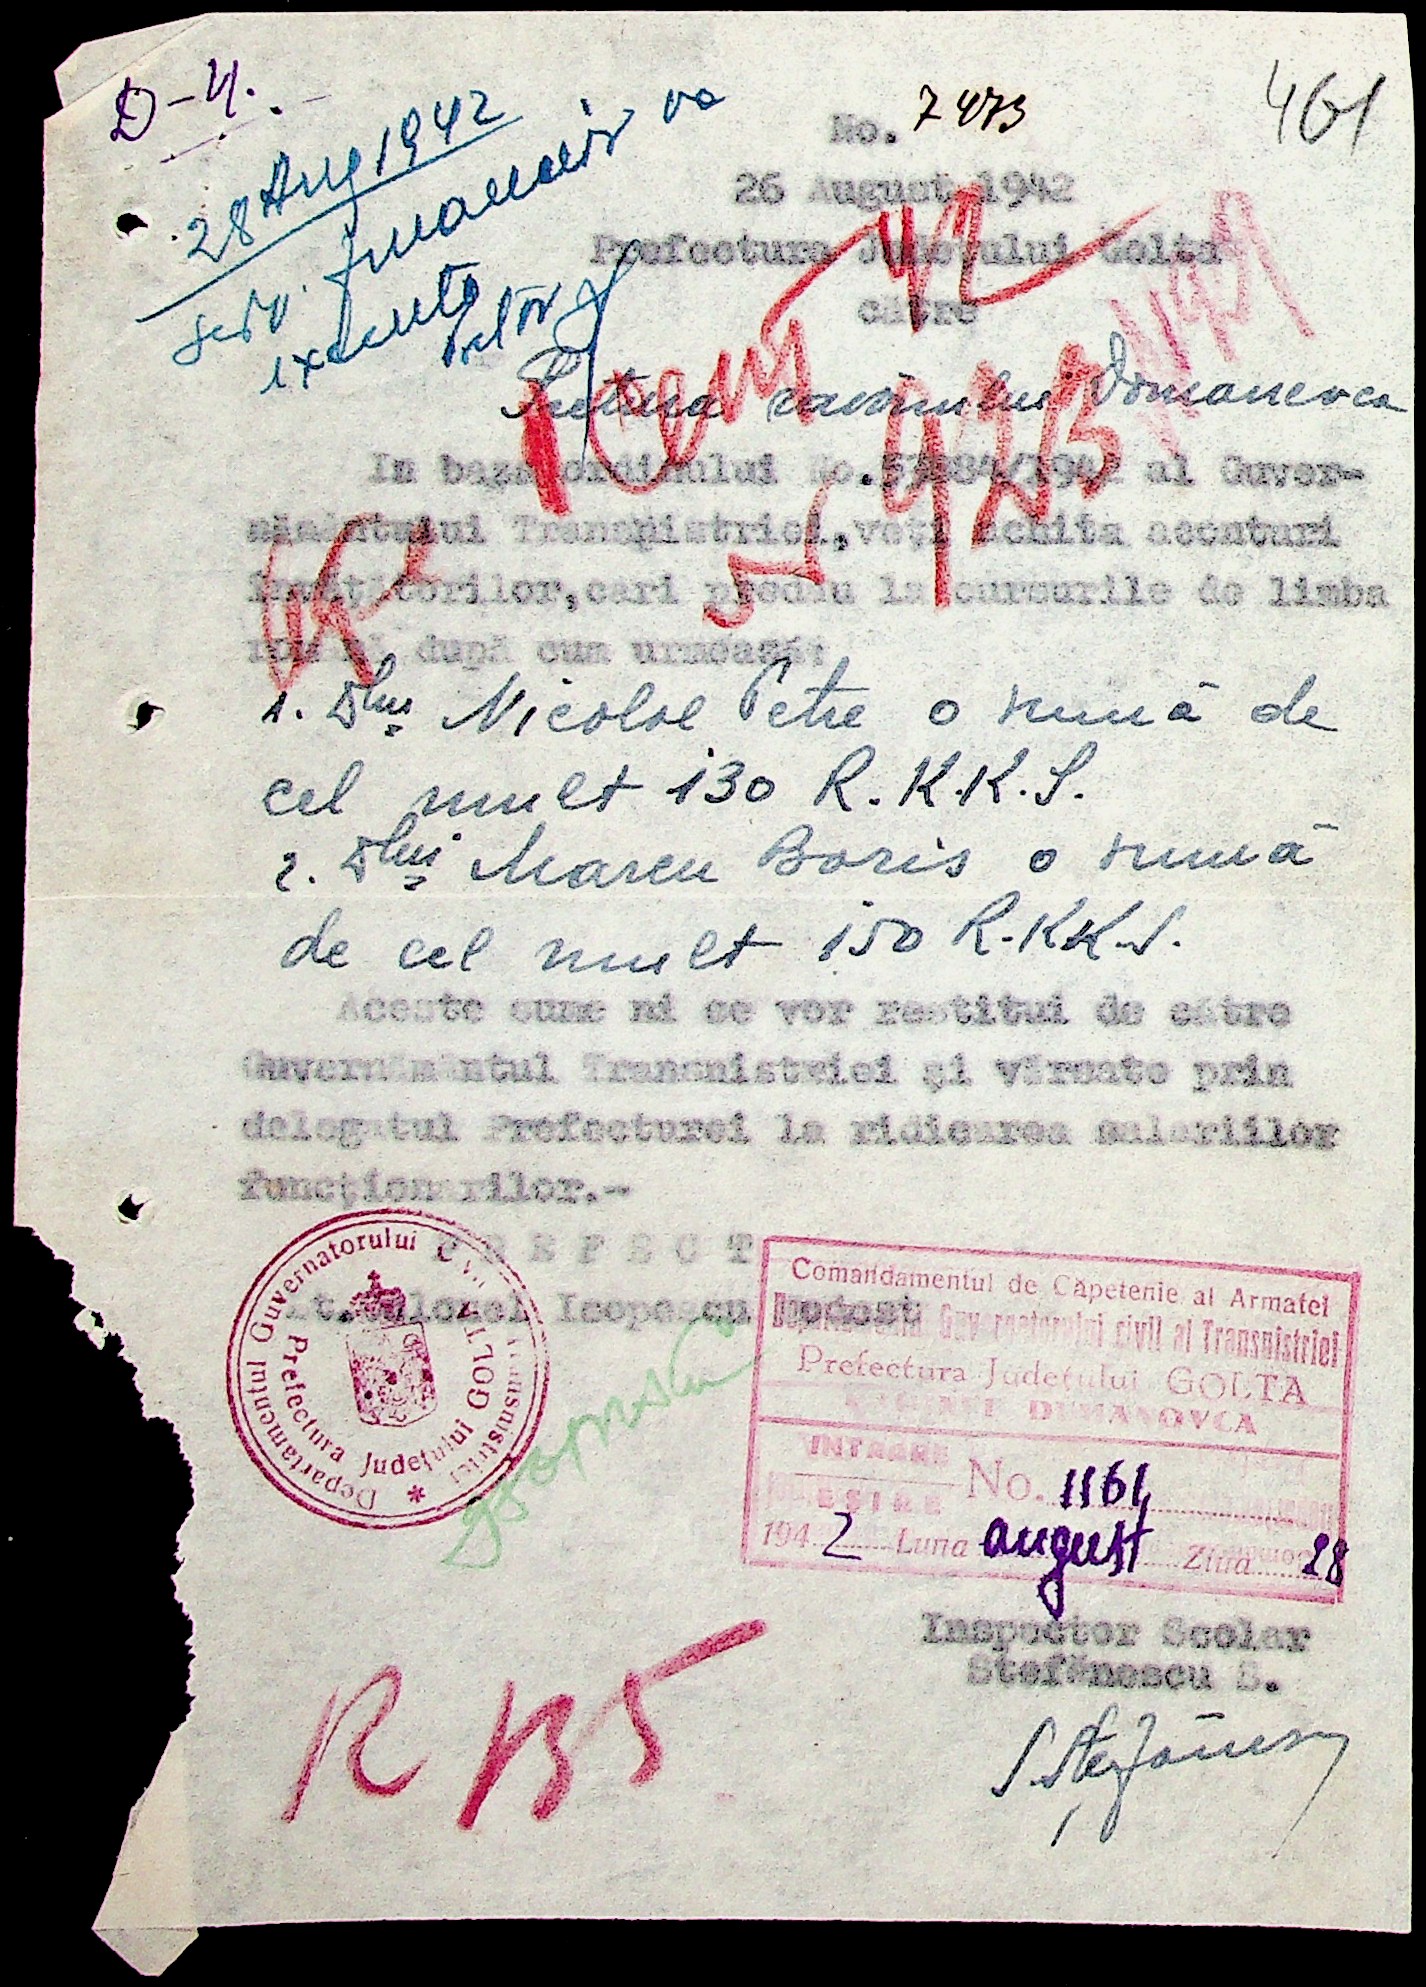 D-4.
461
28 Aug 1942
serv. financiar va
executa
Pretor
No. 7473
26 August 1942
Prefectura Județului Golta
către
Pretura raionului Domanevca
In baza ordinului No. al Guver-
nământului Transnistriei, veți achita aconturi
învățătorilor, cari predau la cursurile de limba
română după cum urmează:
1. Dlui Nicolae Petre o sumă de
cel mult 130 R.K.K.S.
2. Dlui Marcu Boris o sumă
de cel mult 150 R.K.K.S.
Aceste sume ni se vor restitui de către
Guvernământul Transnistriei și vărsate prin
delegatul Prefecturei la ridicarea salariilor
funcționarilor.-
PREFECT
Lt. Colonel Isopescu Modest
Departamentul Guvernatorului Civil Transnistriei
Prefectura Județului GOLTA
Comandamentul de Căpetenie al Armatei
Departamentul Guvernatorului civil al Transnistriei
Prefectura Județului GOLTA
DUMANOVCA
INTRARE
IESIRE
No. 1161
1942 Luna august Ziua 28
Inspector Scolar
Stefănescu S.
S Stefănescu
R B5